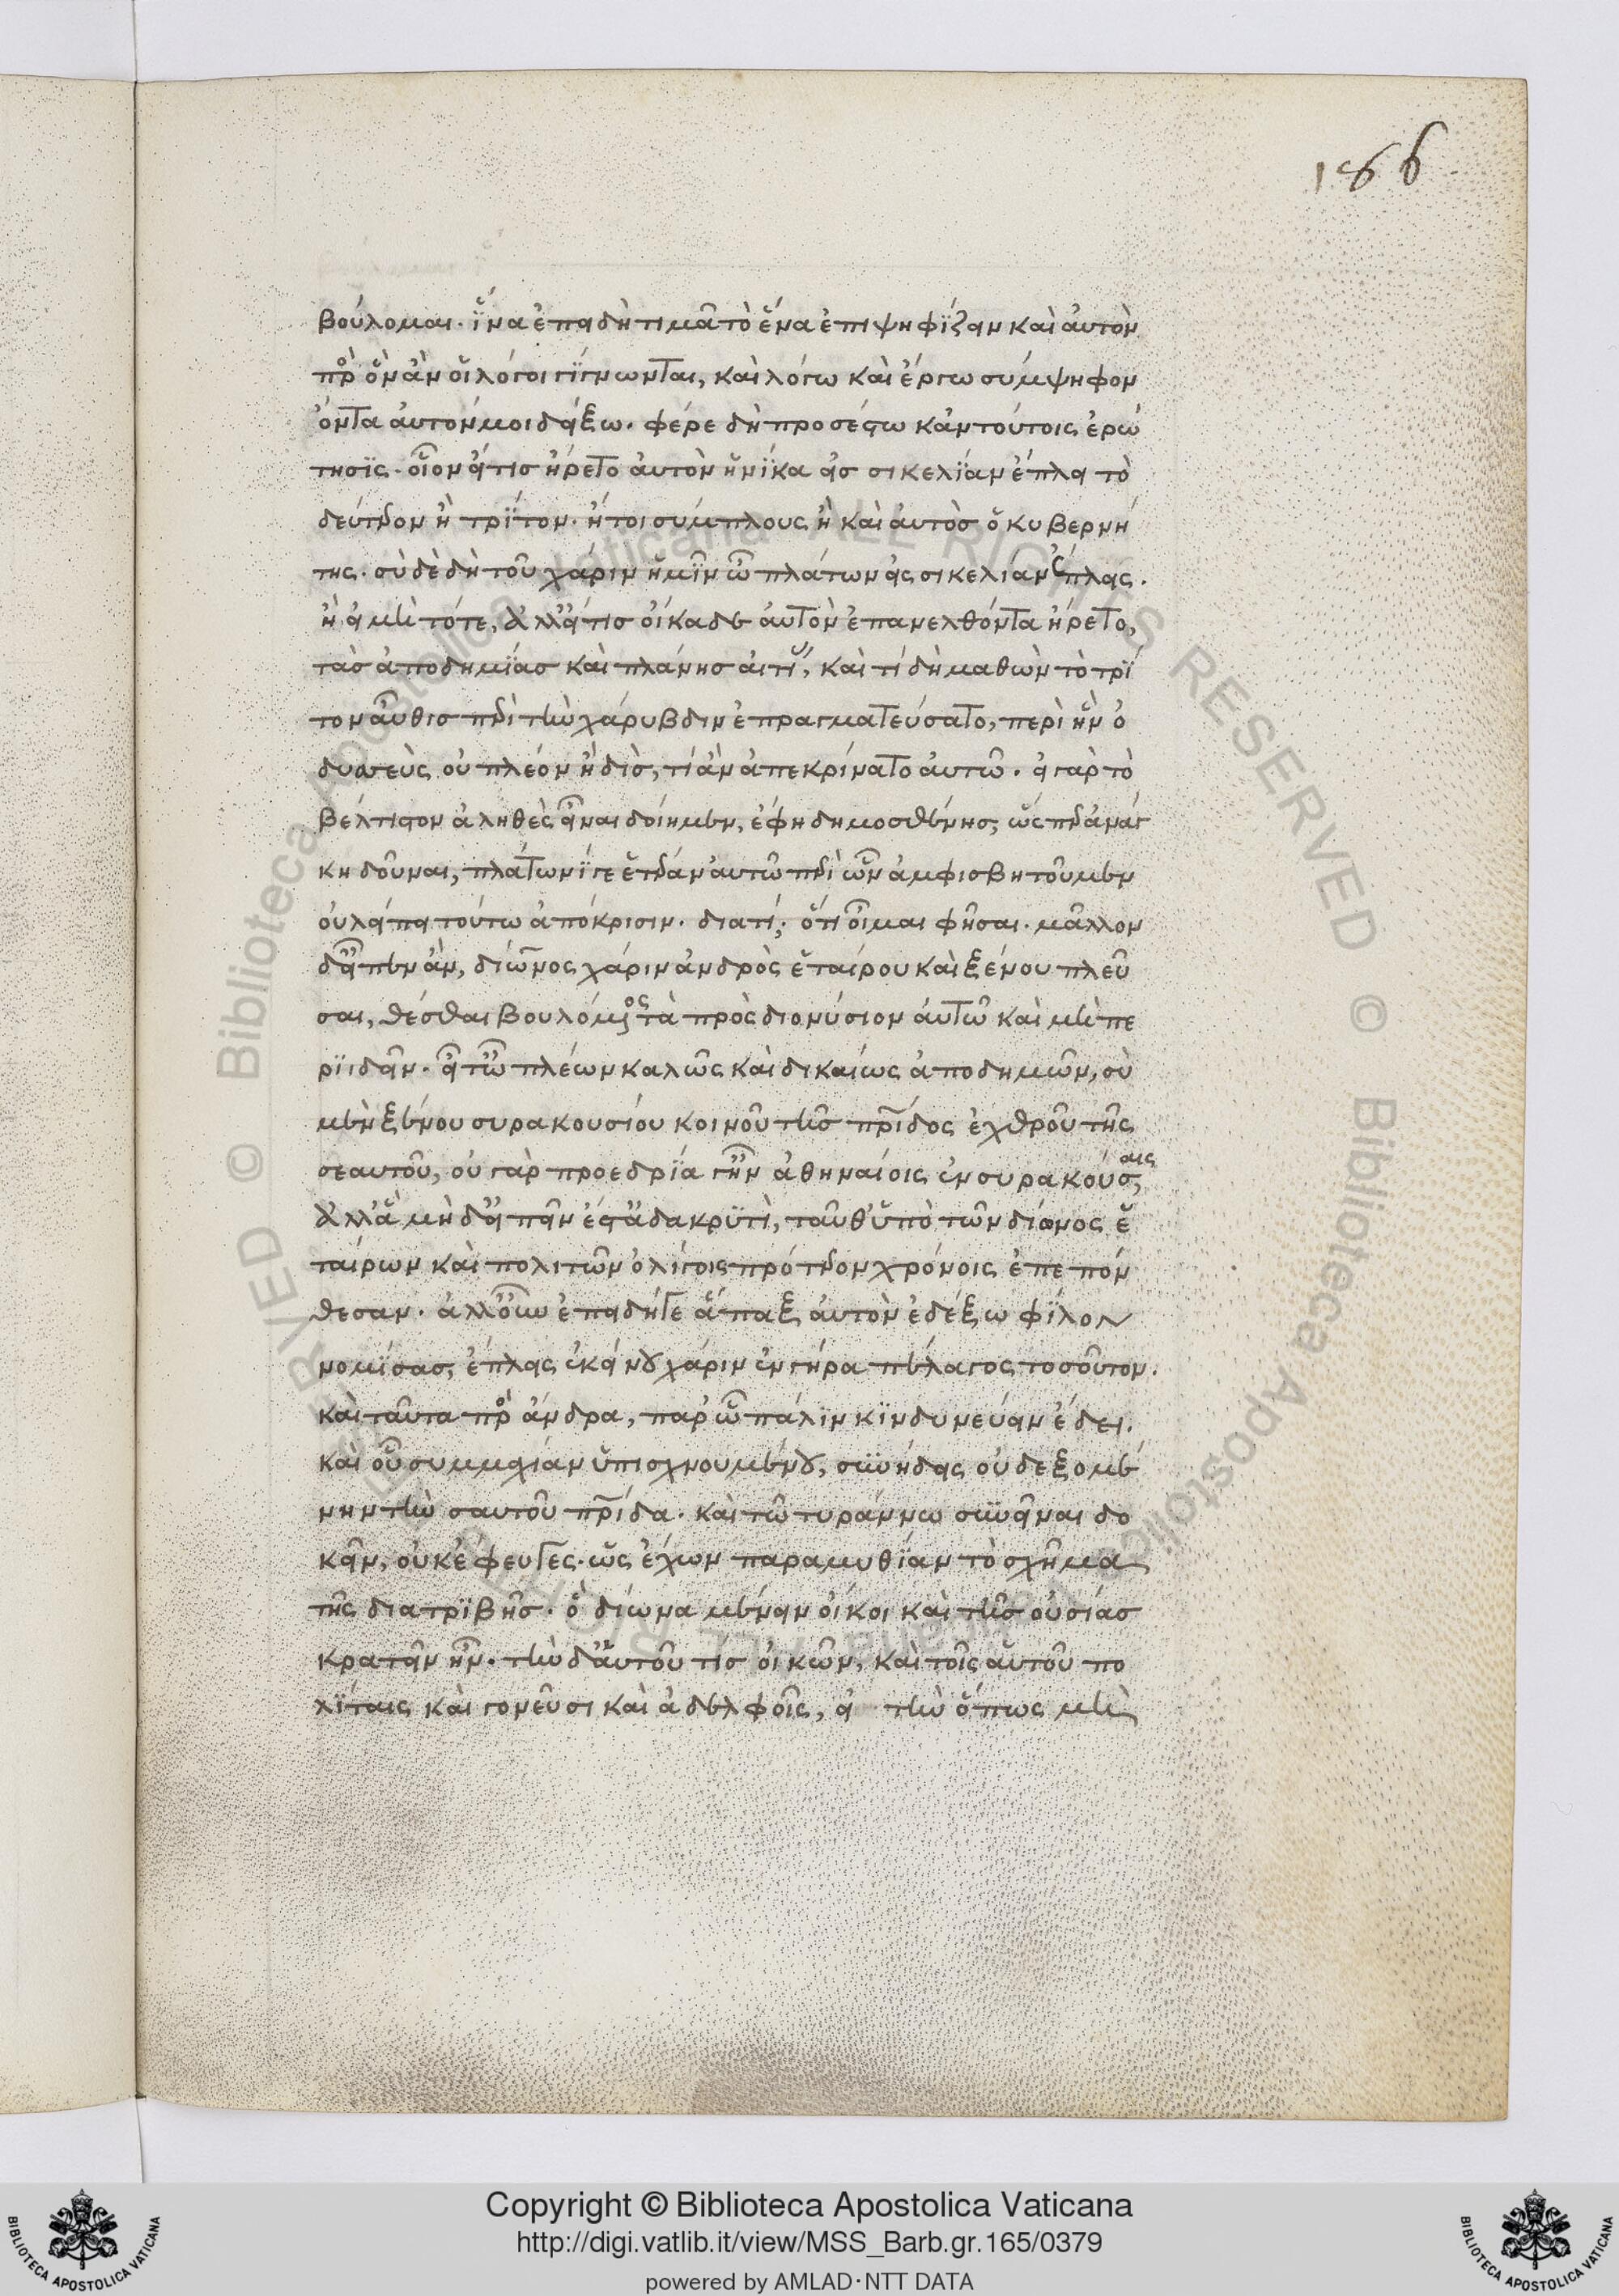 186
βούλομαι. ἵνα ἐπειδὴ τιμᾶ τὸ ἕνα ἐπιψηφίζειν καὶ αὐτὸν
πρ ὃν ἂν οἱ λόγοι γίγνωνται, καὶ λόγω καὶ ἔργω σύμψηφον
ὄντα αὐτόν μοι δείξω. φέρε δὴ προσέστω κἀν τούτοις ἐρώ
τησις. οἷον εἴ τισ ἤρετο αὐτὸν ἡνίκα εἰσ σικελίαν ἔπλει τὸ
δεύτερον ἢ τρίτον. ἤτοι σύμπλους ἢ καὶ αὐτὸσ ὁ κυβερνή
της. σὺ δὲ δὴ τοῦ χάριν ἡμῖν ὦ πλάτων εἰς σικελίαν ἔπλεις.
ἢ εἰ μὴ τότε, ἀλλ' εἴ τισ οἴκαδε αὐτὸν ἐπανελθόντα ἤρετο,
τὰσ ἀποδημίασ καὶ πλάνησ αἰτι, καὶ τί δὴ μαθὼν τὸ τρί
τον αὖθισ περὶ τὴν χάρυβδιν ἐπραγματεύσατο, περὶ ἣν ὀ
δυσσεὺς οὐ πλέον ἢ δὶσ, τί ἂν ἀπεκρίνατο αὐτῶ. εἰ γὰρ τὸ
βέλτιστον ἀληθὲς εἶναι δοίημεν, ἔφη δημοσθένησ, ὥσπερ ἀνάγ
κη δοῦναι, πλάτωνί γε ἑτέραν αὐτῶ περὶ ὧν ἀμφισβητοῦμεν
οὐ λείπει τούτω ἀπόκρισιν. διατί; ὅτι οἶμαι φῆσαι. μᾶλλον
δ' εἶπεν ἂν, δίωνος χάριν ἀνδρὸς ἑταίρου καὶ ξένου πλεῦ
σαι, θέσθαι βουλόμενος τὰ πρὸς διονύσιον αὐτῶ καὶ μὴ πε
ριιδεῖν. εἶτ' ὦ πλέων καλῶς καὶ δικαίως ἀποδημῶν, σὺ
μὲν ξένου συρακουσίου κοινοῦ τῆσ πρίδος ἐχθροῦ τῆς
σεαυτοῦ, οὐ γὰρ προεδρία γ' ἦν ἀθηναίοις ἐν συρακούσαις,
ἀλλ' ἃ μὴ δ' εἰπεῖν ἔστ' ἀδακρυτὶ, ταῦθ' ὑπὸ τῶν δίωνος ἑ
ταίρων καὶ πολιτῶν ὀλίγοις πρότερον χρόνοις ἐπεπόν
θεσαν. ἀλλ' ὅμω ἐπειδήγε ἅπαξ αὐτὸν ἐδέξω φίλον
νομίσασ, ἔπλεις ἐκείνου χάριν ἐν γήρα πέλαγος τοσοῦτον.
καὶ ταῦτα πρ ἄνδρα, παρ' ὧ πάλιν κινδυνεύειν ἔδει.
καὶ οὗ συμμαχίαν ὑπισχνουμένου, συνήδεις οὐ δεξομέ
νην τὴν σαυτοῦ πρίδα. καὶ τῶ τυράννω συνεῖναι δο
κεῖν, οὐκ ἔφευγες. ὡς ἔχων παραμυθίαν τὸ σχῆμα
τῆς διατριβῆσ. ὃ δίωνα μένειν οἴκοι καὶ τῆσ οὐσίασ
κρατεῖν ἦν. τὴν δ' αὑτοῦ τισ οἰκῶν, καὶ τοῖς αὑτοῦ πο
λίταις καὶ γονεῦσι καὶ ἀδελφοῖς, εἰ τὴν ὅπως μὴ
Copyright © Biblioteca Apostolica Vaticana
http://digi.vatlib.it/view/MSS_Barb.gr.165/0379
powered by AMLAD·NTT DATA